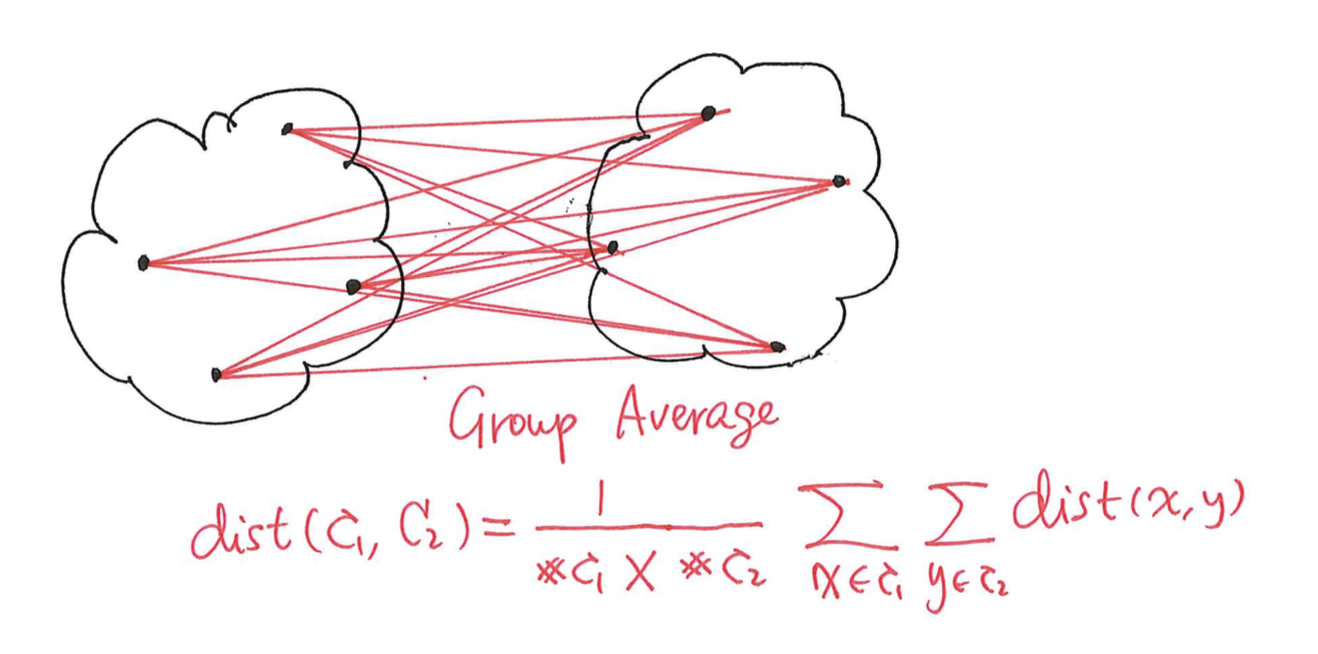 Group Average
dist(C₁, C₂) = 1 / (#C₁ X #C₂) ∑ x∈C₁ ∑ y∈C₂ dist(x,y)